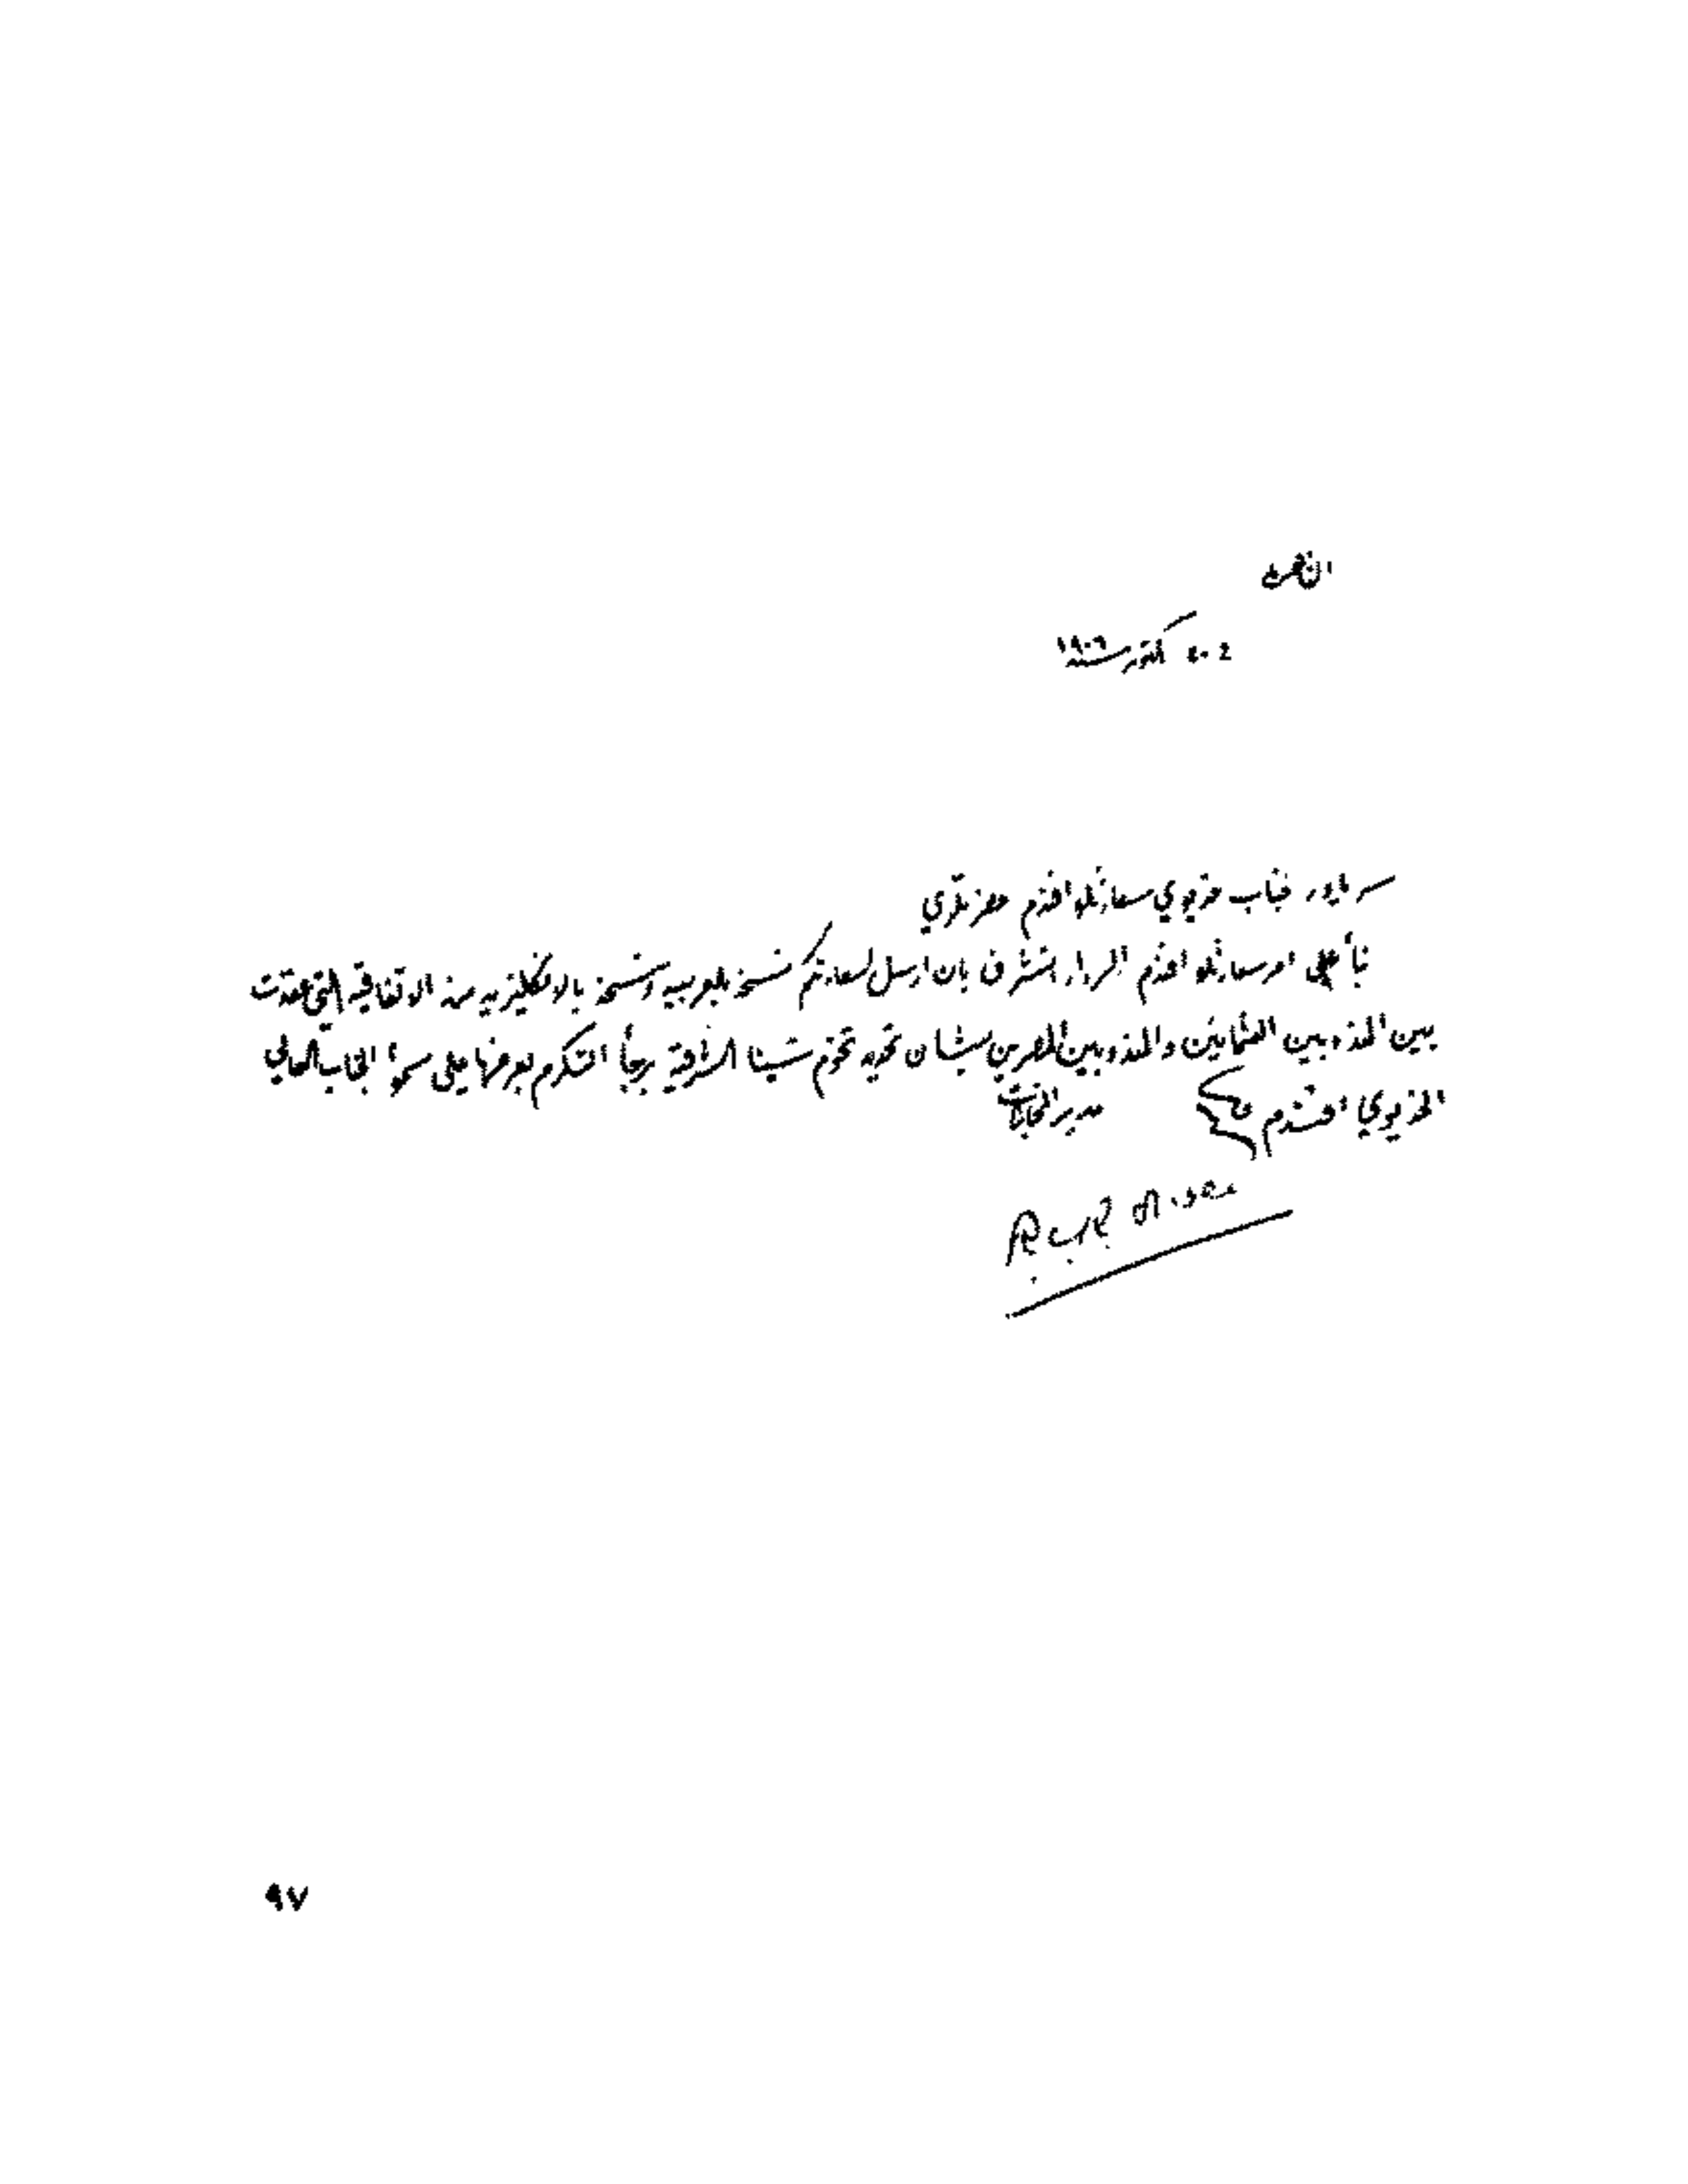 القاهرة
اكتوبر سنة ١٩٠٦
سرياور جناب خديوي سعادتلو افندم حضرتلري
بناً على امر سعادتلو افندم السردار اتشرف بان ارسل لسعادتكم نسخة بالعربيه ونسخة بالانكليزيه من الاتفاقية التي عقدت
بين المندوبين العثمانيين والمندوبين المصريين بشان تحديد تخوم سينا الشرقية برجا التكرم بعرضها على سمو الجناب العالي
الخديوي افندم
مدير المخابرات
٩٧